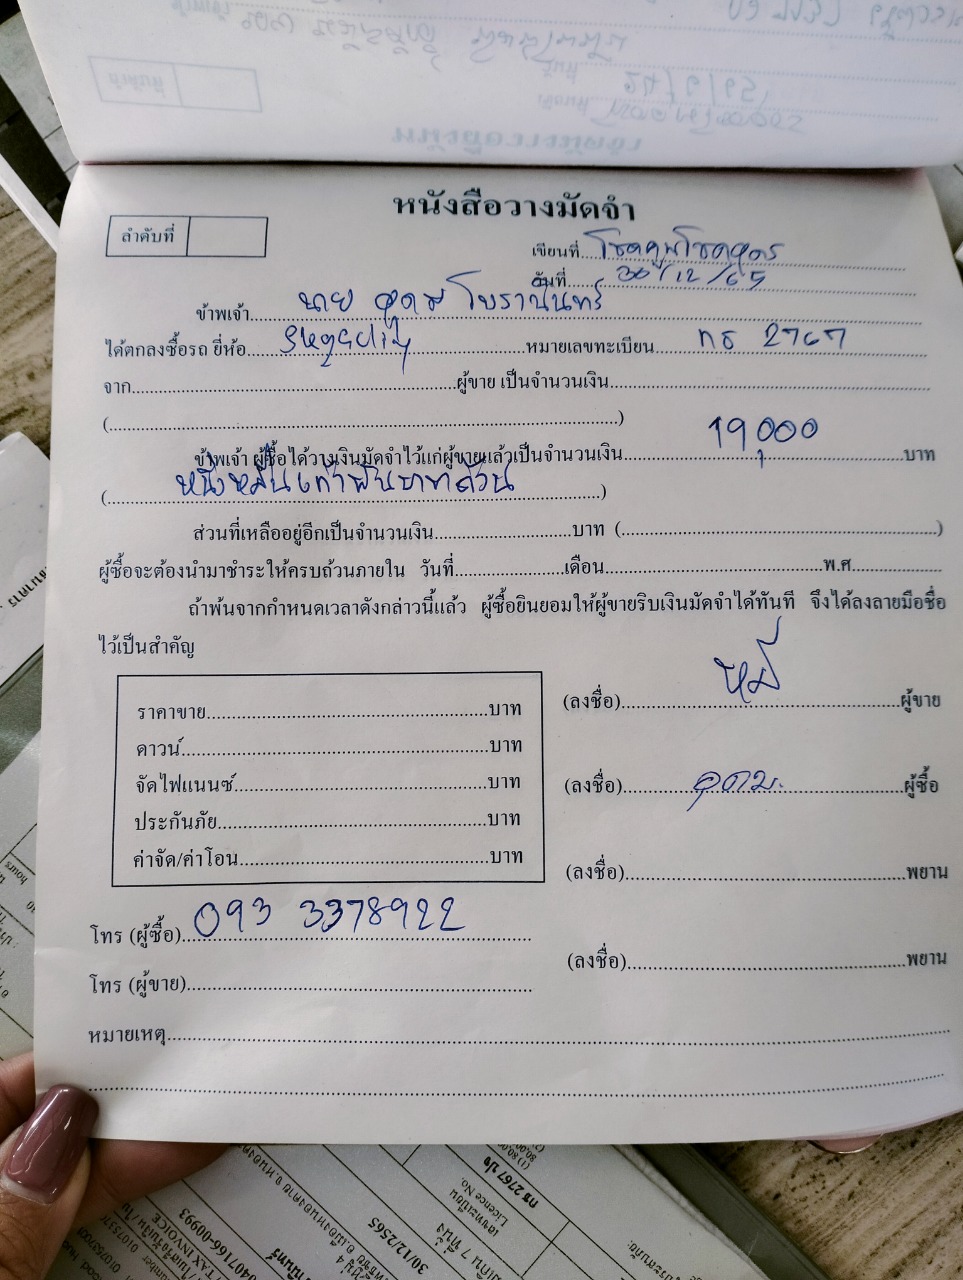 หนังสือวางมัดจำ
ลำดับที่
เขียนที่
วันที่ 30/12/65
ข้าพเจ้า นาย อุดม โบรานินทร์
ได้ตกลงซื้อรถ ยี่ห้อ หมายเลขทะเบียน กธ 2767
จาก ผู้ขาย เป็นจำนวนเงิน
( )
ข้าพเจ้า ผู้ซื้อได้วางเงินมัดจำไว้แก่ผู้ขายแล้วเป็นจำนวนเงิน 19,000 บาท
(หนึ่งหมื่นเก้าพันบาทถ้วน)
ส่วนที่เหลืออยู่อีกเป็นจำนวนเงิน บาท ( )
ผู้ซื้อจะต้องนำมาชำระให้ครบถ้วนภายใน วันที่ เดือน พ.ศ.
ถ้าพ้นจากกำหนดเวลาดังกล่าวนี้แล้ว ผู้ซื้อยินยอมให้ผู้ขายริบเงินมัดจำได้ทันที จึงได้ลงลายมือชื่อ
ไว้เป็นสำคัญ
(ลงชื่อ) หมี ผู้ขาย
ราคาขาย บาท
ดาวน์ บาท
(ลงชื่อ) อุดม ผู้ซื้อ
จัดไฟแนนซ์ บาท
ประกันภัย บาท
ค่าจัด/ค่าโอน บาท
(ลงชื่อ) พยาน
โทร (ผู้ซื้อ) 093 3378922
(ลงชื่อ) พยาน
โทร (ผู้ขาย)
หมายเหตุ
กธ 2767 ปจ
เลขทะเบียน
Licence No.
30/12/2565
TAX INVOICE